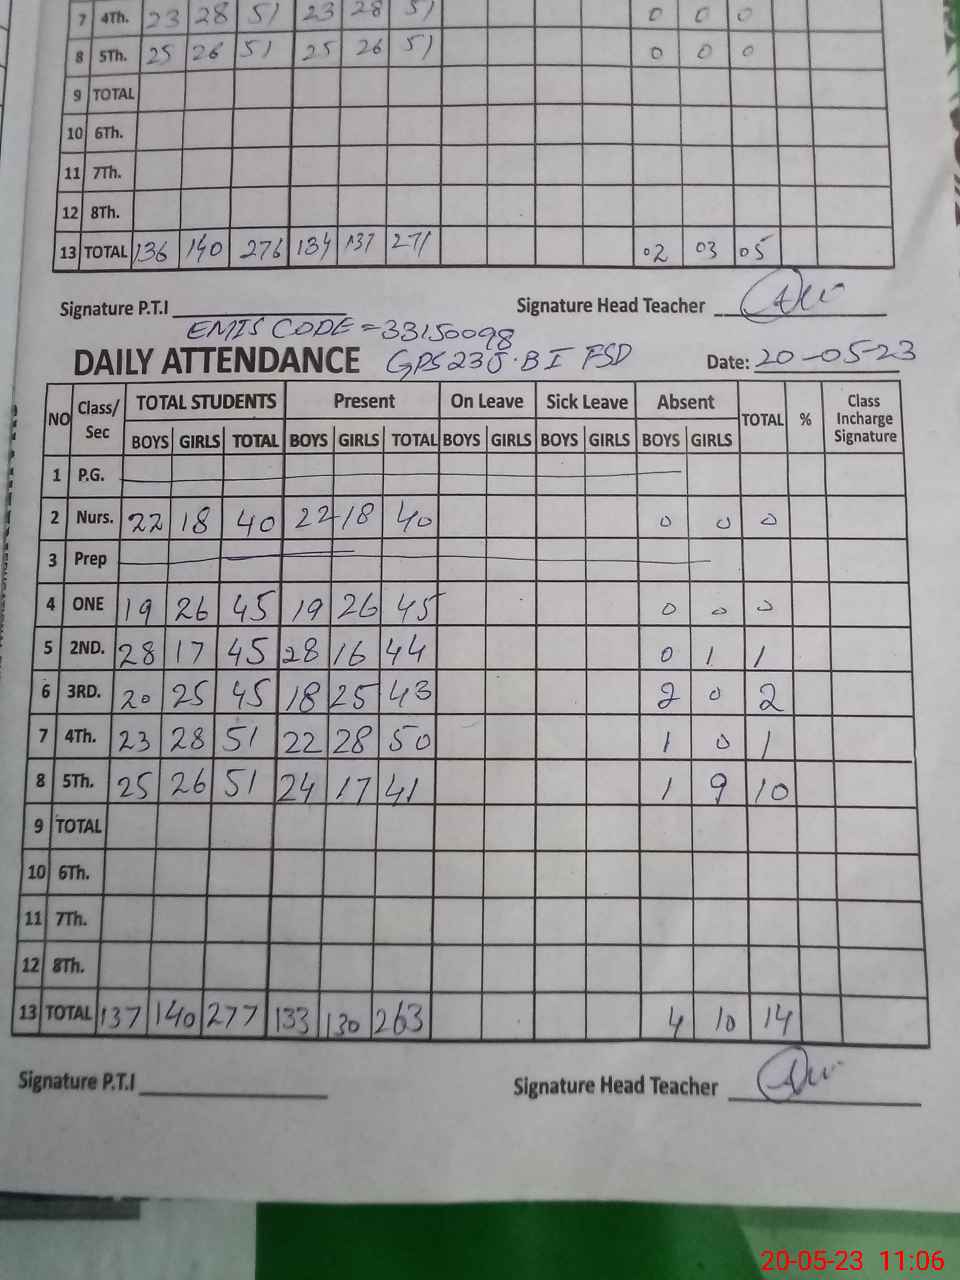 7 4Th. 23 28 51 23 28 51 0 0 0
8 5Th. 25 26 51 25 26 51 0 0 0
9 TOTAL
10 6Th.
11 7Th.
12 8Th.
13 TOTAL 136 140 276 134 137 271 02 03 05
Signature P.T.I
Signature Head Teacher
EMIS CODE = 33150098
DAILY ATTENDANCE GPS 235 FSD Date: 20-05-23
NO Class/Sec TOTAL STUDENTS Present On Leave Sick Leave Absent TOTAL % Class Incharge Signature
BOYS GIRLS TOTAL BOYS GIRLS TOTAL BOYS GIRLS BOYS GIRLS BOYS GIRLS
1 P.G.
2 Nurs. 22 18 40 22 18 40 0 0 0
3 Prep
4 ONE 19 26 45 19 26 45 0 0 0
5 2ND. 28 17 45 28 16 44 0 1 1
6 3RD. 20 25 45 18 25 43 2 0 2
7 4Th. 23 28 51 22 28 50 1 0 1
8 5Th. 25 26 51 24 17 41 1 9 10
9 TOTAL
10 6Th.
11 7Th.
12 8Th.
13 TOTAL 137 140 277 133 130 263 4 10 14
Signature P.T.I
Signature Head Teacher
20-05-23 11:06